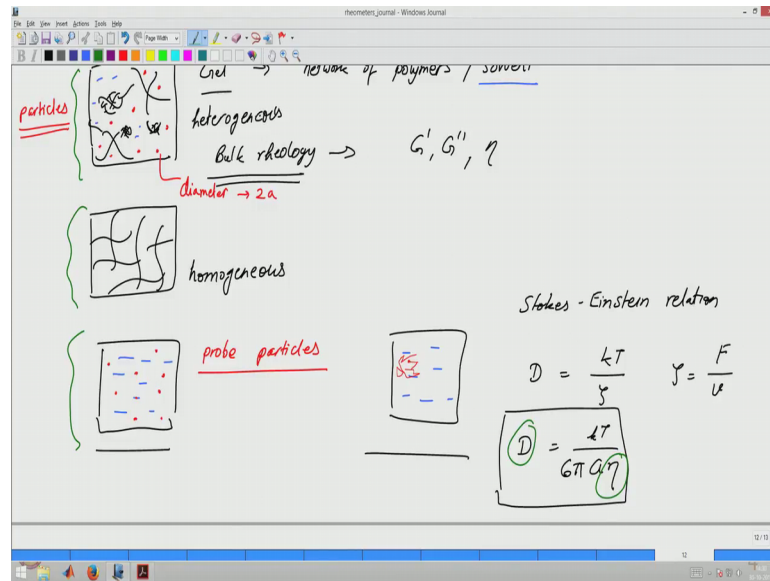 rheometers_journal - Windows Journal
File Edit View Insert Actions Tools Help
Page Width
B I
Gel → network of polymers / solvent
particles
heterogeneous
Bulk rheology → G', G'', η
diameter → 2a
homogeneous
Stokes - Einstein relation
probe particles
D = kT / ζ ζ = F / v
D = kT / 6π a η
12 / 13
12